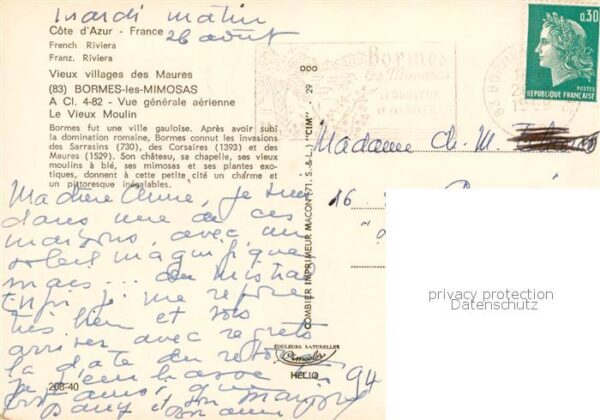 mardi matin
26 août
Côte d'Azur - France
French Riviera
Franz. Riviera
Vieux villages des Maures
(83) BORMES-les-MIMOSAS
A CI. 4-82 - Vue générale aérienne
Le Vieux Moulin
Bormes fut une ville gauloise. Après avoir subi
la domination romaine, Bormes connut les invasions
des Sarrasins (730), des Corsaires (1393) et des
Maures (1529). Son château, sa chapelle, ses vieux
moulins à blé, ses mimosas et ses plantes exo-
tiques, donnent à cette petite cité un charme et
un pittoresque inégalables.
Ma chère Annie, je suis
dans une de ces
maisons, avec un
soleil magnifique
mais... du mistral
Enfin je me repose
très bien et vois
arriver avec regrets
la date du retour
je t'embrasse
et son
208-40
COMBIER IMPRIMEUR MACON (71. S.-&-L.) "CIM"
29
000
COULEURS NATURELLES
Cimcolor
HELIO
Bormes
les Mimosas
0,30
POSTES
REPUBLIQUE FRANÇAISE
83 BORMES
Madame Ch. M.
16
94
privacy protection
Datenschutz